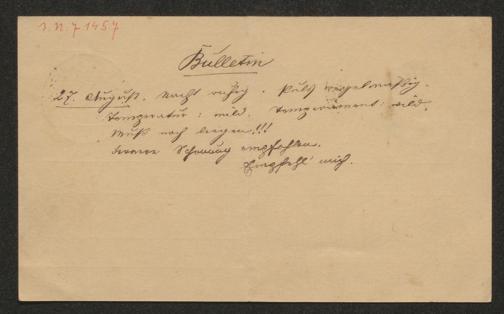 I. N. 71457
Bulletin
27. August. Nacht ruhig. Puls regelmässig.
Temperatur: mild. Temperament: wild.
Muß noch liegen!!!
Schonung empfohlen.
Empfehl' mich.